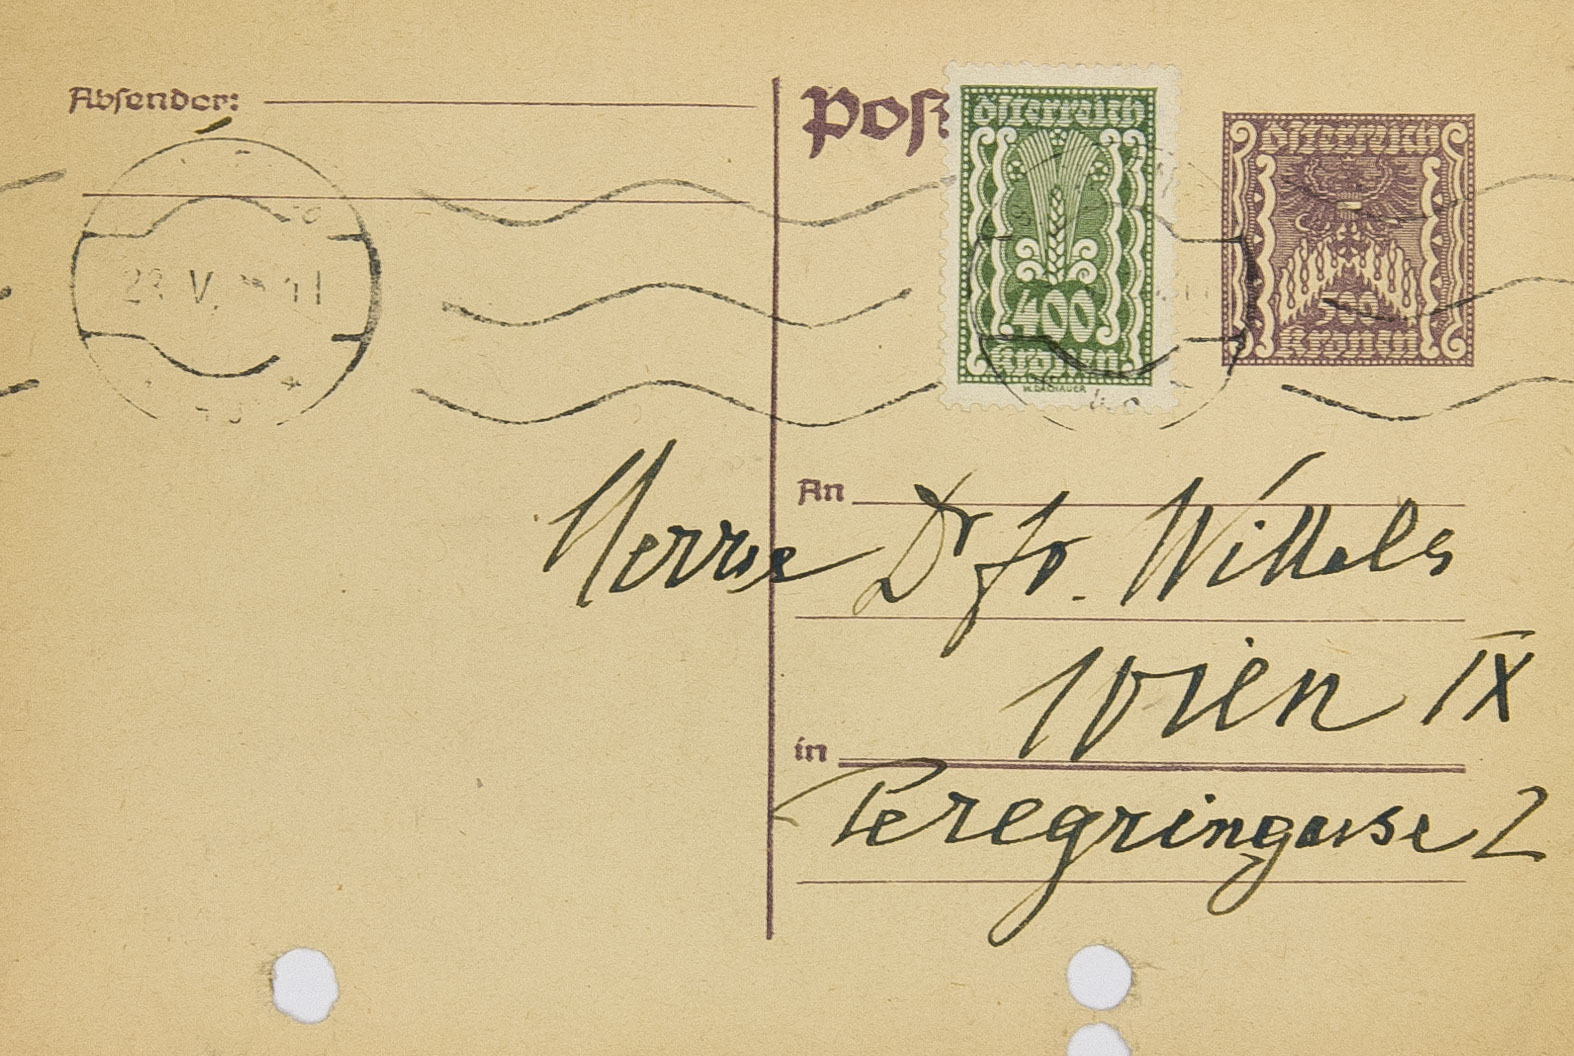 Absender:
Post
Österreich
400
Kronen
W. DACHAUER
Österreich
500
Kronen
23. V. 11
An
Herrn Dr Fr. Wittels
Wien IX
in
Peregringasse 2